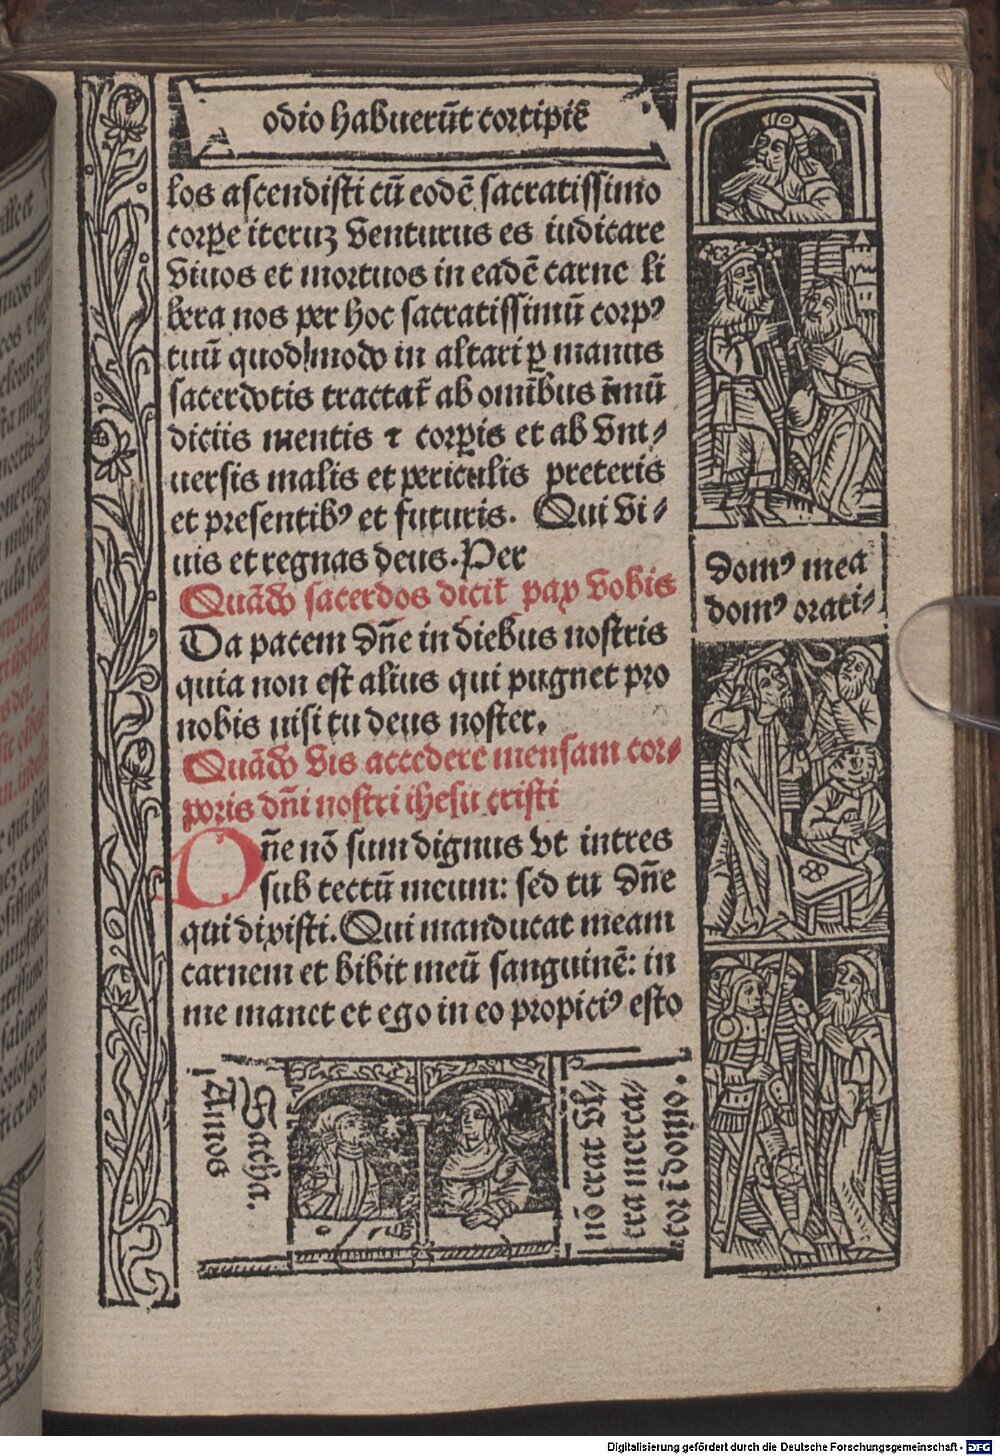 odio habuerūt cortipiē
los ascendisti cū eodē sacratissimo
corpe iteruz venturus es iudicare
viuos et mortuos in eadē carne li
bera nos per hoc sacratissimū corpꝰ
tuū quod modo in altari ꝑ manus
sacerdotis tractat̄ ab omībus īmū
diciis mentis ⁊ corꝑis et ab vni⸗
uersis malis et periculis preteris
et presentibꝰ et futuris. Qui vi⸗
uis et regnas deus. Per
Quādo sacerdos dicit pax vobis
Da pacem dñe in diebus nostris
quia non est alius qui pugnet pro
nobis nisi tu deus noster.
Quādo vis accedere mensam cor⸗
poris dñi nostri ihesu cristi
Oñe nō sum dignus vt intres
sub tectū meum: sed tu dñe
qui dixisti. Qui manducat meam
carnem et bibit meū sanguinē: in
me manet et ego in eo propiciꝰ esto
domꝰ mea
domꝰ orati⸗
Sacha.
Amos
nō erat vl⸗
tra merca⸗
tor ī domo.
Digitalisierung gefördert durch die Deutsche Forschungsgemeinschaft - DFG